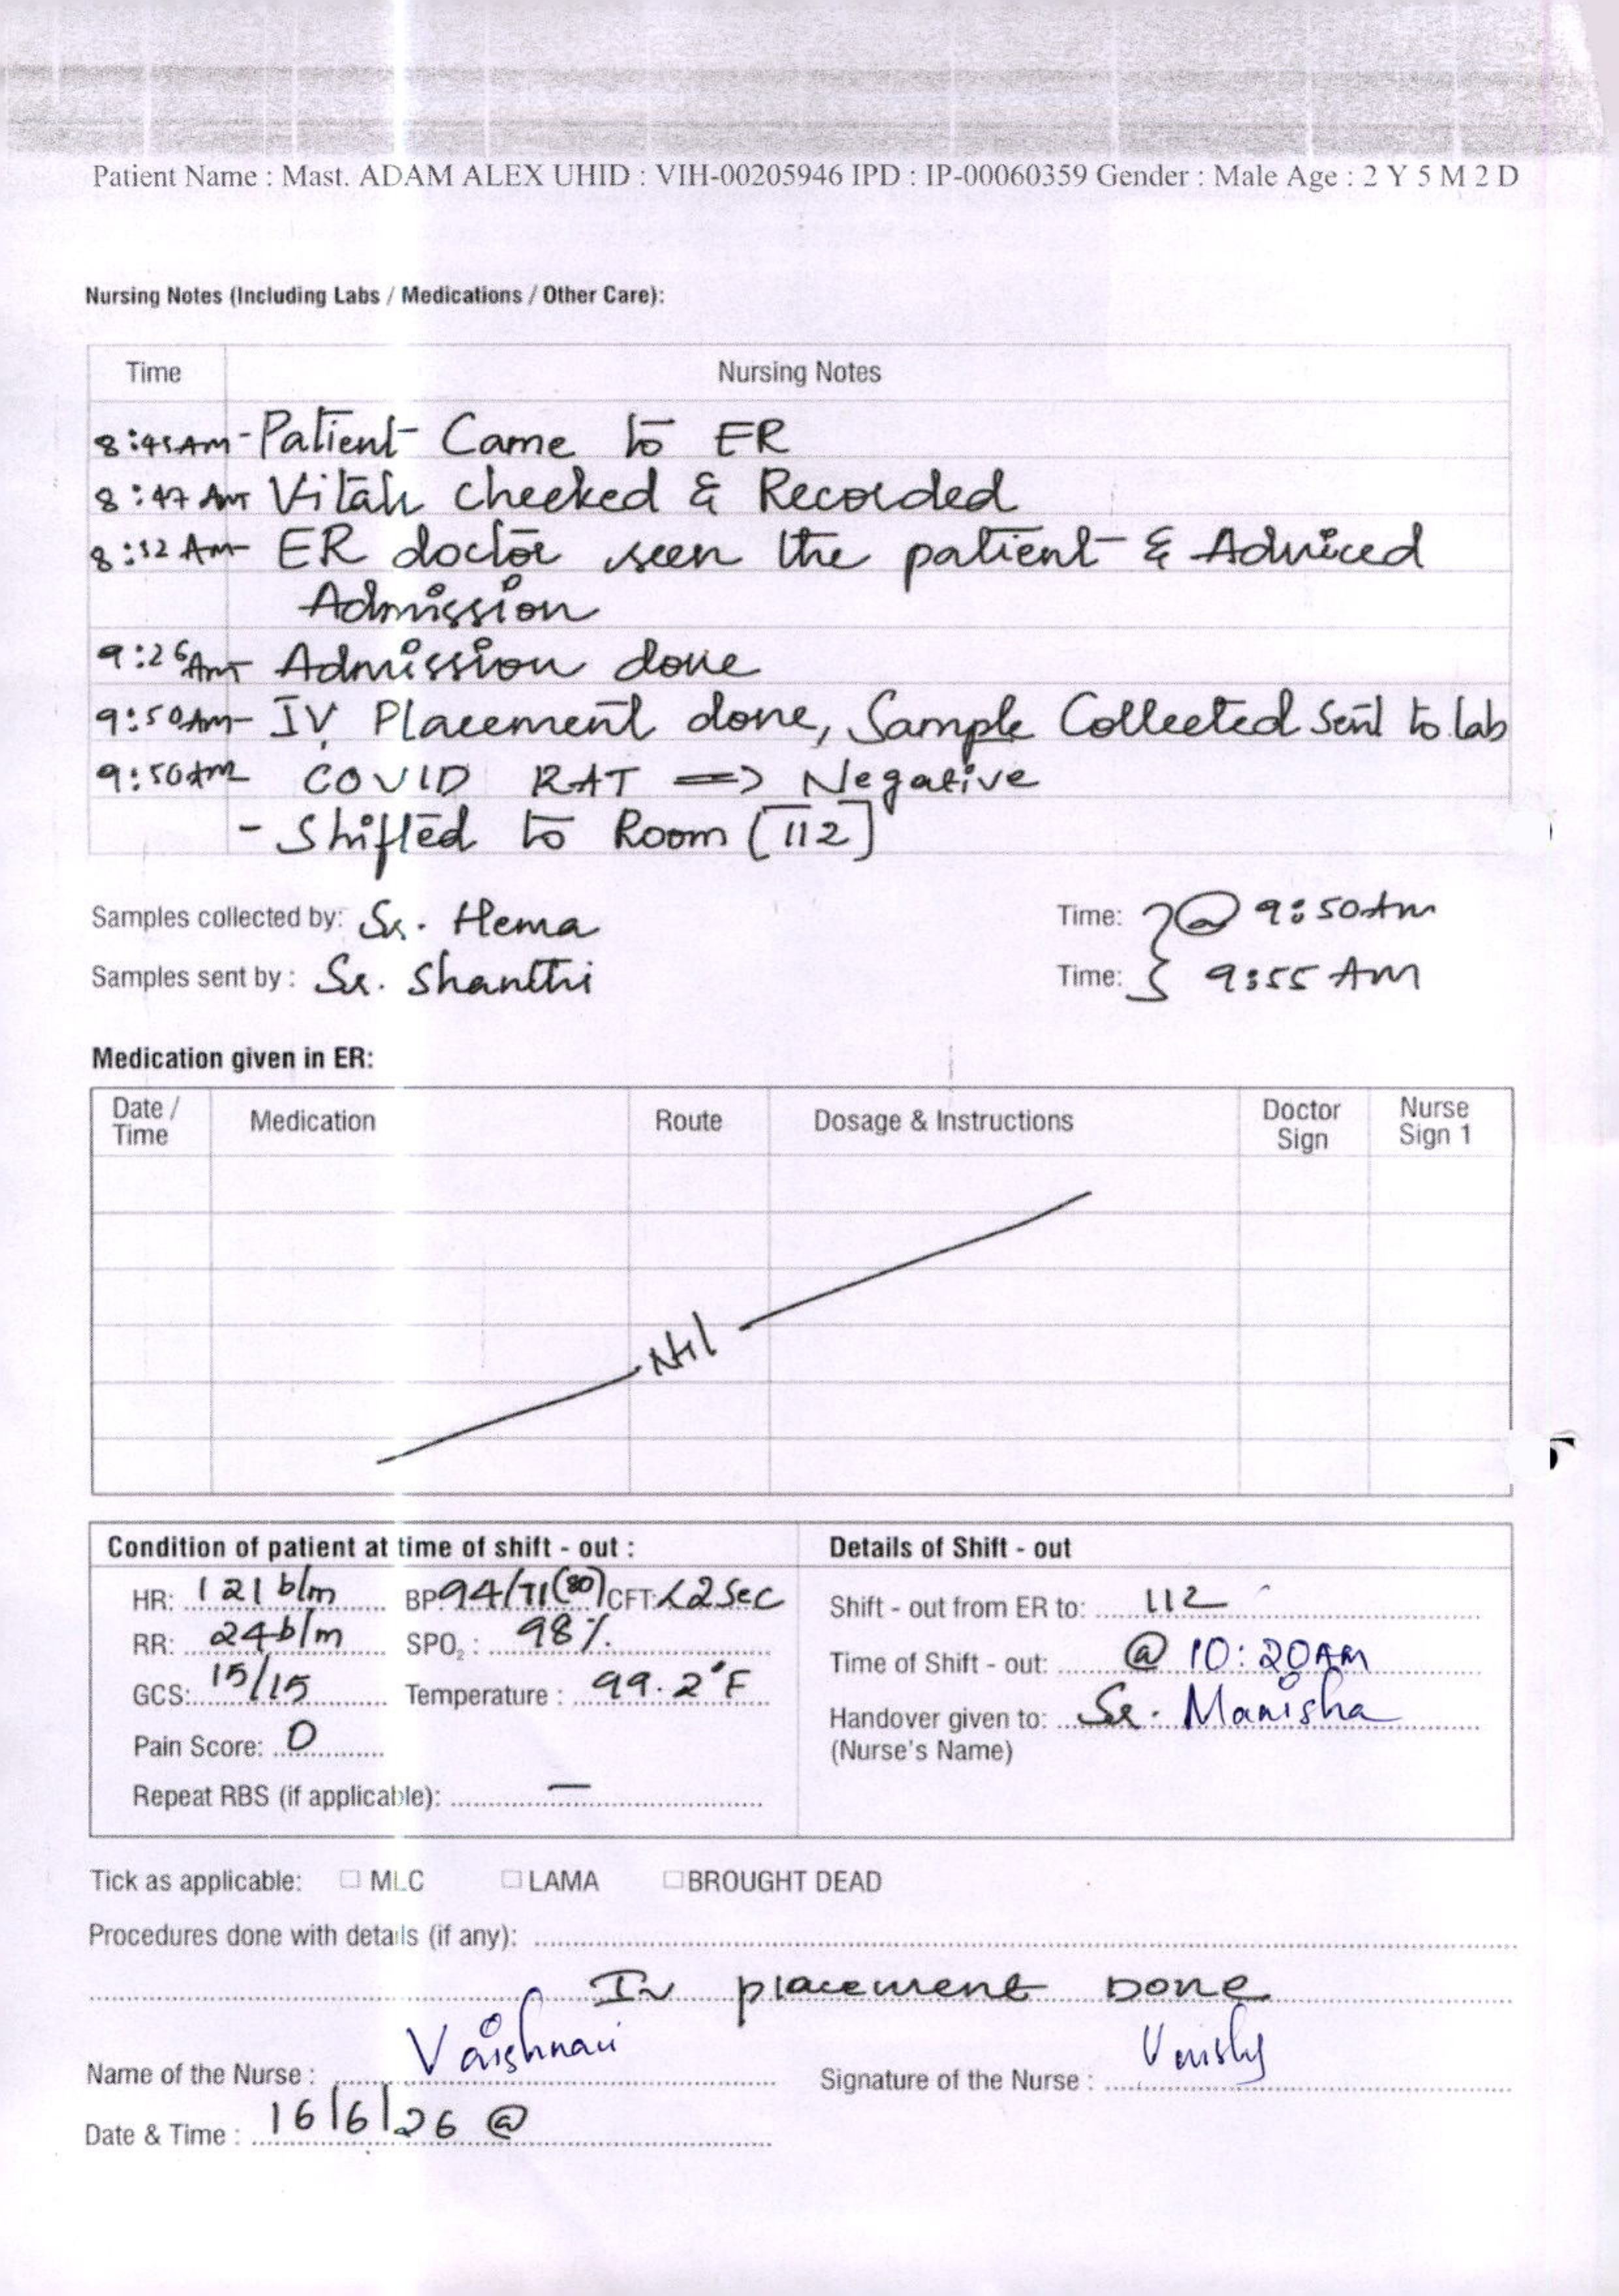 Patient Name : Mast. ADAM ALEX UHID : VIH-00205946 IPD : IP-00060359 Gender : Male Age : 2 Y 5 M 2 D
Nursing Notes (Including Labs / Medications / Other Care):
Time Nursing Notes
8:45AM - Patient Came to ER
8:47 AM Vitals checked & Recorded
ER doctor seen the patient & Adviced
Admission
9:26AM Admission done
9:50AM - IV Placement done, Sample Collected Sent to lab
9:50AM COVID RAT => Negative
- Shifted to Room [112]
Samples collected by: Sr. Hema Time: @ 9:50Am
Samples sent by : Sr. Shanthi Time: 9:55 AM
Medication given in ER:
Date / Time Medication Route Dosage & Instructions Doctor Sign Nurse Sign 1
Nil
Condition of patient at time of shift - out : Details of Shift - out
HR: 121 b/m BP 94/71(80) CFT: <2 Sec Shift - out from ER to: 112
RR: 24 b/m SPO2 : 98%. Time of Shift - out: @ 10:20AM
GCS: 15/15 Temperature : 99.2°F Handover given to: Sr. Manisha
Pain Score: 0 (Nurse's Name)
Repeat RBS (if applicable): —
Tick as applicable: MLC LAMA BROUGHT DEAD
Procedures done with details (if any):
IV placement Done
Name of the Nurse : Vaishnavi Signature of the Nurse :
Date & Time : 16/6/26 @